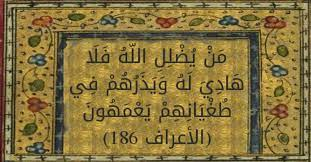 مَنْ يُضْلِلِ اللّهُ فَلَا
هَادِيَ لَهُ وَيَذَرُهُمْ فِي
طُغْيَانِهِمْ يَعْمَهُونَ
(الأعراف 186)